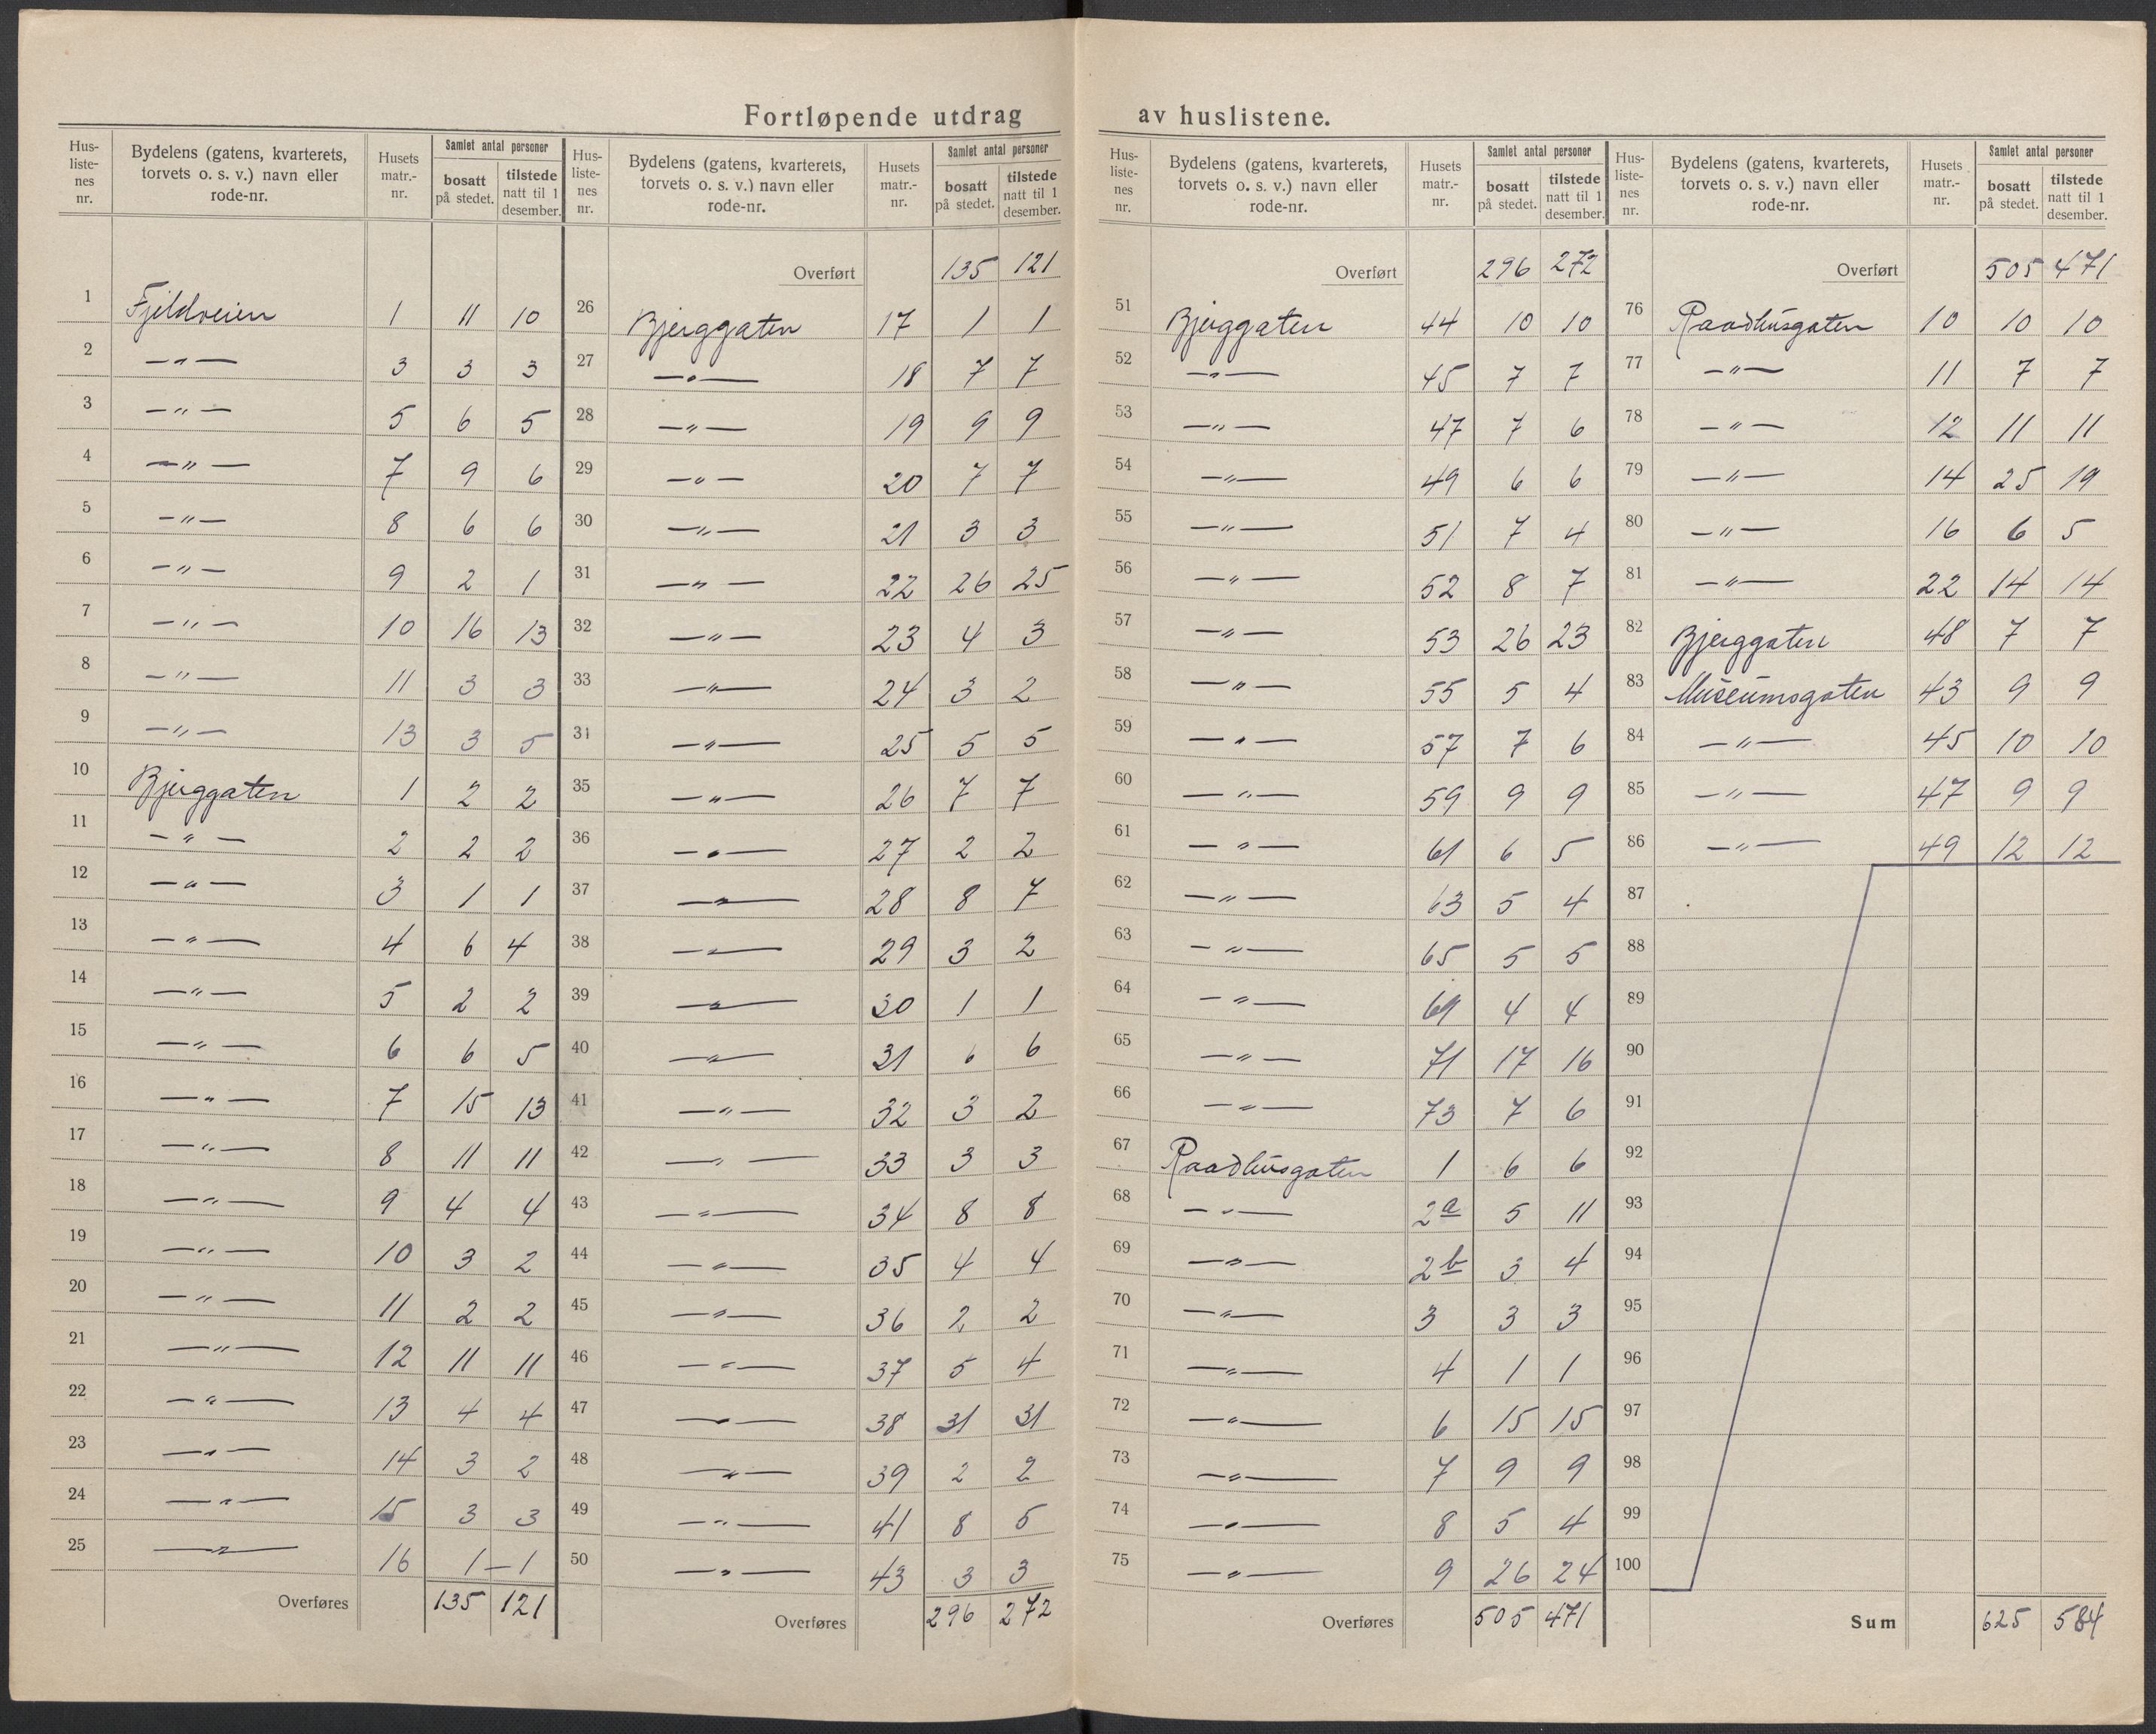 Fortløpende utdrag av huslistene.
Hus-liste-nes nr. | Bydelens (gatens, kvarterets, torvets o. s. v.) navn eller rode-nr. | Husets matr.-nr. | Samlet antal personer bosatt på stedet. | tilstede natt til 1 desember.
1 Fjeldveien 1 11 10
2 —„— 3 3 3
3 —„— 5 6 5
4 —„— 7 9 6
5 —„— 8 6 6
6 —„— 9 2 1
7 —„— 10 16 13
8 —„— 11 3 3
9 —„— 13 3 5
10 Bjerggaten 1 2 2
11 —„— 2 2 2
12 —„— 3 1 1
13 —„— 4 6 4
14 —„— 5 2 2
15 —„— 6 6 5
16 —„— 7 15 13
17 —„— 8 11 11
18 —„— 9 4 4
19 —„— 10 3 2
20 —„— 11 2 2
21 —„— 12 11 11
22 —„— 13 4 4
23 —„— 14 3 2
24 —„— 15 3 3
25 —„— 16 1 – 1
Overføres 135 121
Hus-liste-nes nr. | Bydelens (gatens, kvarterets, torvets o. s. v.) navn eller rode-nr. | Husets matr.-nr. | Samlet antal personer bosatt på stedet. | tilstede natt til 1 desember.
Overført 135 121
26 Bjerggaten 17 1 1
27 —„— 18 7 7
28 —„— 19 9 9
29 —„— 20 7 7
30 —„— 21 3 3
31 —„— 22 26 25
32 —„— 23 4 3
33 —„— 24 3 2
31 —„— 25 5 5
35 —„— 26 7 7
36 —„— 27 2 2
37 —„— 28 8 7
38 —„— 29 3 2
39 —„— 30 1 1
40 —„— 31 6 6
41 —„— 32 3 2
42 —„— 33 3 3
43 —„— 34 8 8
44 —„— 35 4 4
45 —„— 36 2 2
46 —„— 37 5 4
47 —„— 38 31 31
48 —„— 39 2 2
49 —„— 41 8 5
50 —„— 43 3 3
Overføres 296 272
Hus-liste-nes nr. | Bydelens (gatens, kvarterets, torvets o. s. v.) navn eller rode-nr. | Husets matr.-nr. | Samlet antal personer bosatt på stedet. | tilstede natt til 1 desember.
Overført 296 272
51 Bjerggaten 44 10 10
52 —„— 45 7 7
53 —„— 47 7 6
54 —„— 49 6 6
55 —„— 51 7 4
56 —„— 52 8 7
57 —„— 53 26 23
58 —„— 55 5 4
59 —„— 57 7 6
60 —„— 59 9 9
61 —„— 61 6 5
62 —„— 63 5 4
63 —„— 65 5 5
64 —„— 69 4 4
65 —„— 71 17 16
66 —„— 73 7 6
67 Raadhusgaten 1 6 6
68 —„— 2a 5 11
69 —„— 2b 3 4
70 —„— 3 3 3
71 —„— 4 1 1
72 —„— 6 15 15
73 —„— 7 9 9
74 —„— 8 5 4
75 —„— 9 26 24
Overføres 505 471
Hus-liste-nes nr. | Bydelens (gatens, kvarterets, torvets o. s. v.) navn eller rode-nr. | Husets matr.-nr. | Samlet antal personer bosatt på stedet. | tilstede natt til 1 desember.
Overført 505 471
76 Raadhusgaten 10 10 10
77 —„— 11 7 7
78 —„— 12 11 11
79 —„— 14 25 19
80 —„— 16 6 5
81 —„— 22 14 14
82 Bjerggaten 48 7 7
83 Museumsgaten 43 9 9
84 —„— 45 10 10
85 —„— 47 9 9
86 —„— 49 12 12
87
88
89
90
91
92
93
94
95
96
97
98
99
100
Sum 625 584